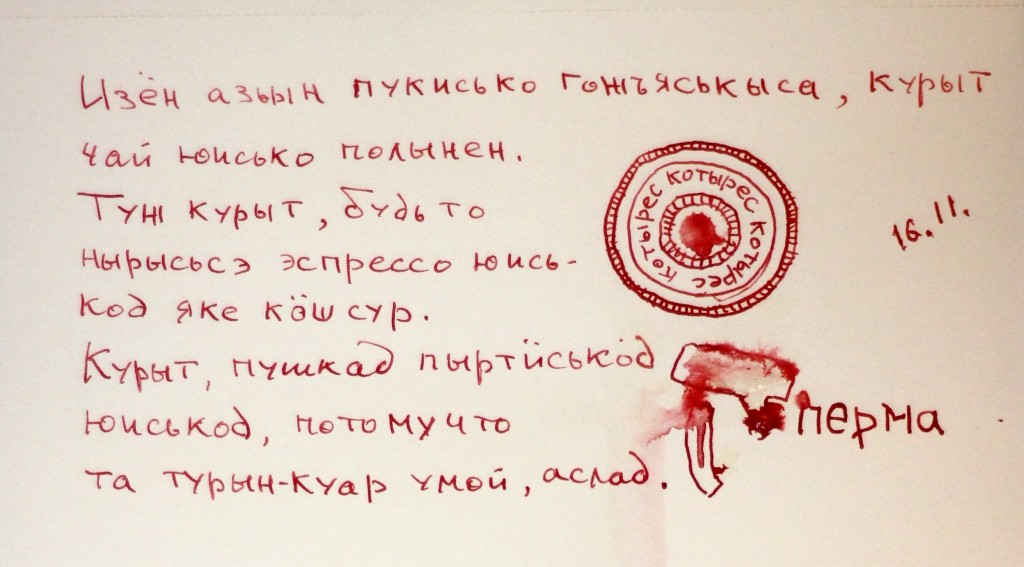 Изён азьын пукисько гожъяськыса, курыт
чай юисько полынен.
Туж курыт, будьто
нырысьсэ эспрессо юись-
код яке кӧш сур.
Курыт, пушкад пыртӥськод
юиськод, потому что
та турын-куар умой, аслад.
котырес котырес котырес котырес
16.11.
перма